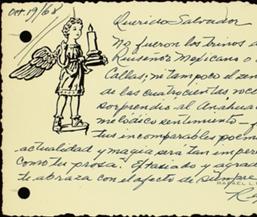 Oct. 19/68
Querido Salvador
No fueron los trinos d
Ruiseñor Mexicano o
Callas; ni tampoco el
de las cuatrocientas
sorprendió al Anáhuac
melódico sentimiento
tus incomparables poem
actualidad y magia será tan
Como tu prosa. Extasiado y agrad
te abraza con el afecto de siempre
RAFAEL L
R